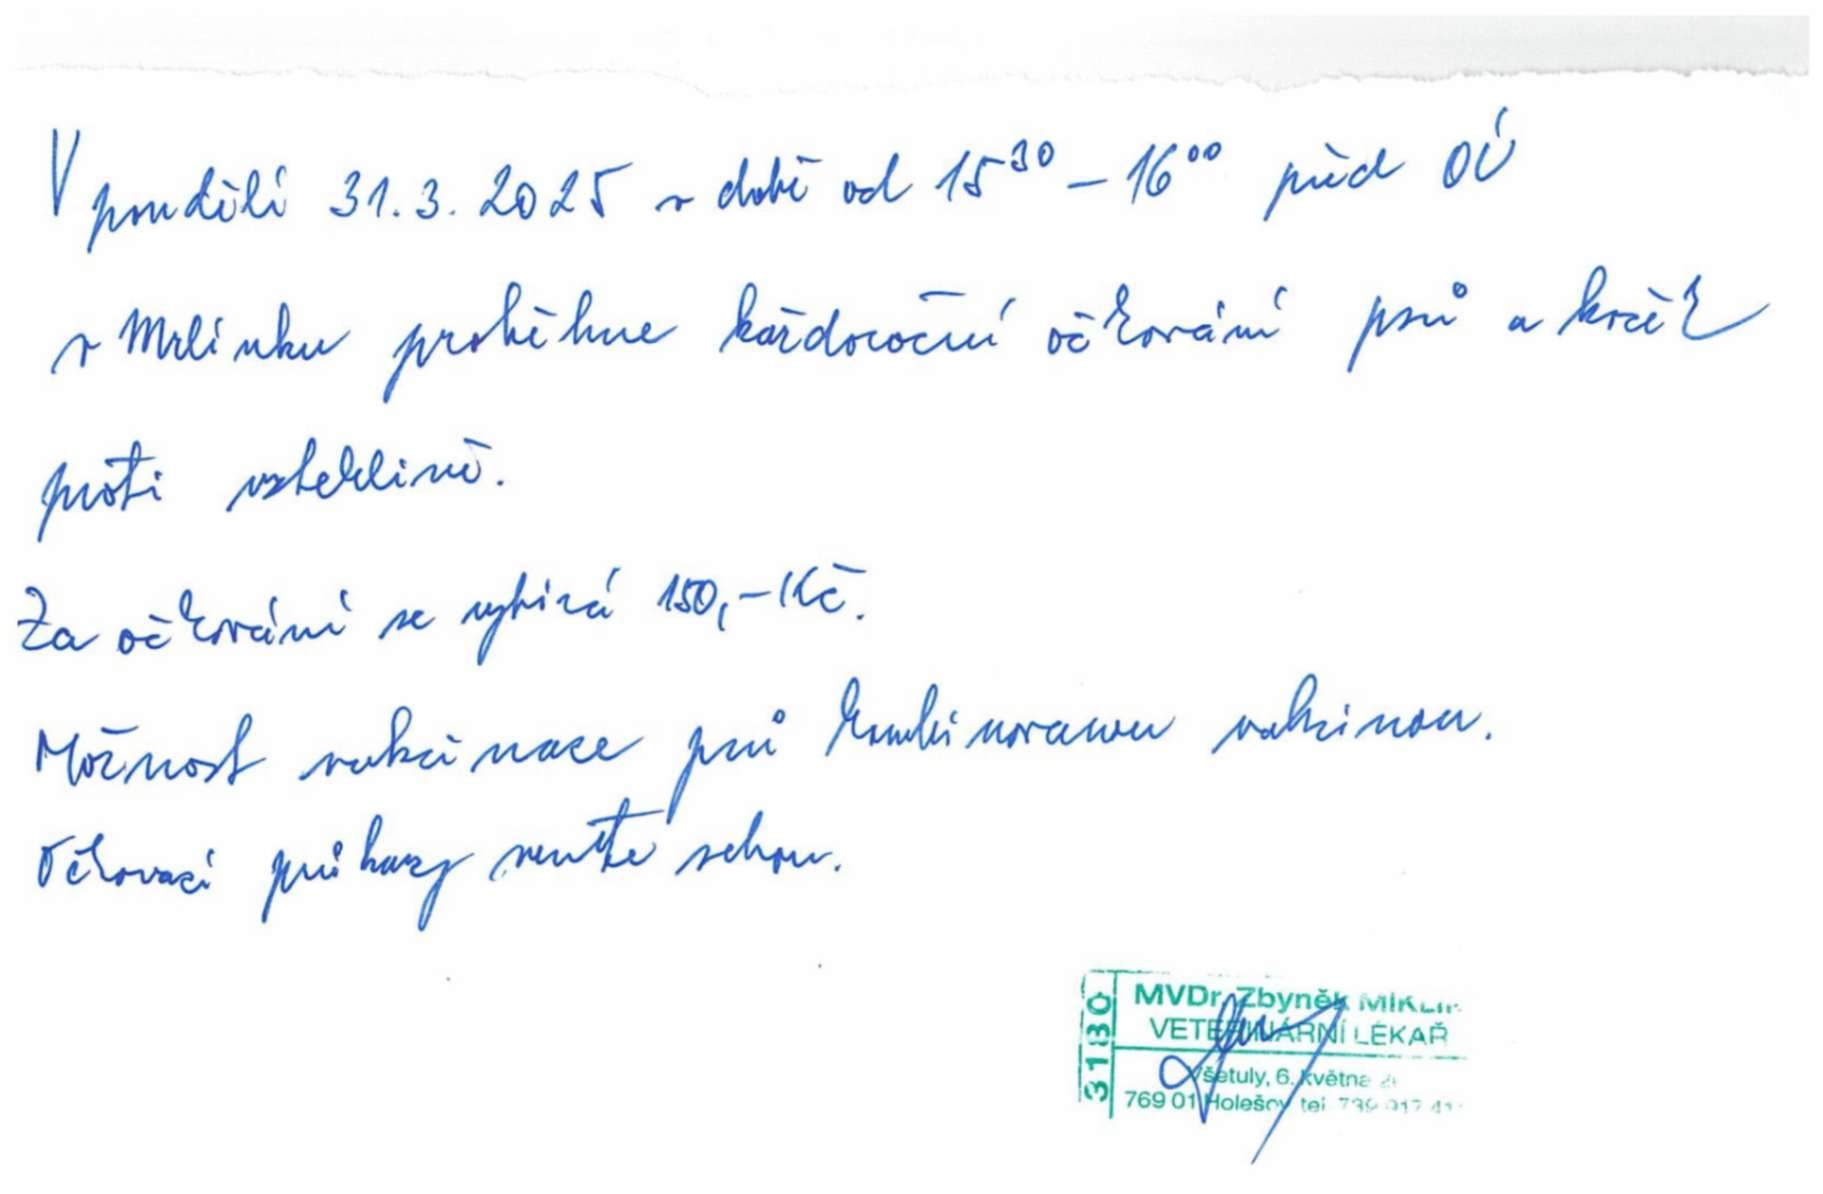 V pondělí 31.3.2025 v době od 15³⁰ – 16⁰⁰ před OÚ
v Mrlínku proběhne každoroční očkování psů a koček
proti vzteklině.
Za očkování se vybírá 150,- Kč.
Možnost vakcinace psů kombinovanou vakcínou.
Očkovací průkazy vemte sebou.
3180
MVDr. Zbyněk
VETERINÁRNÍ LÉKAŘ
Všetuly, 6. května
769 01 Holešov tel. 739